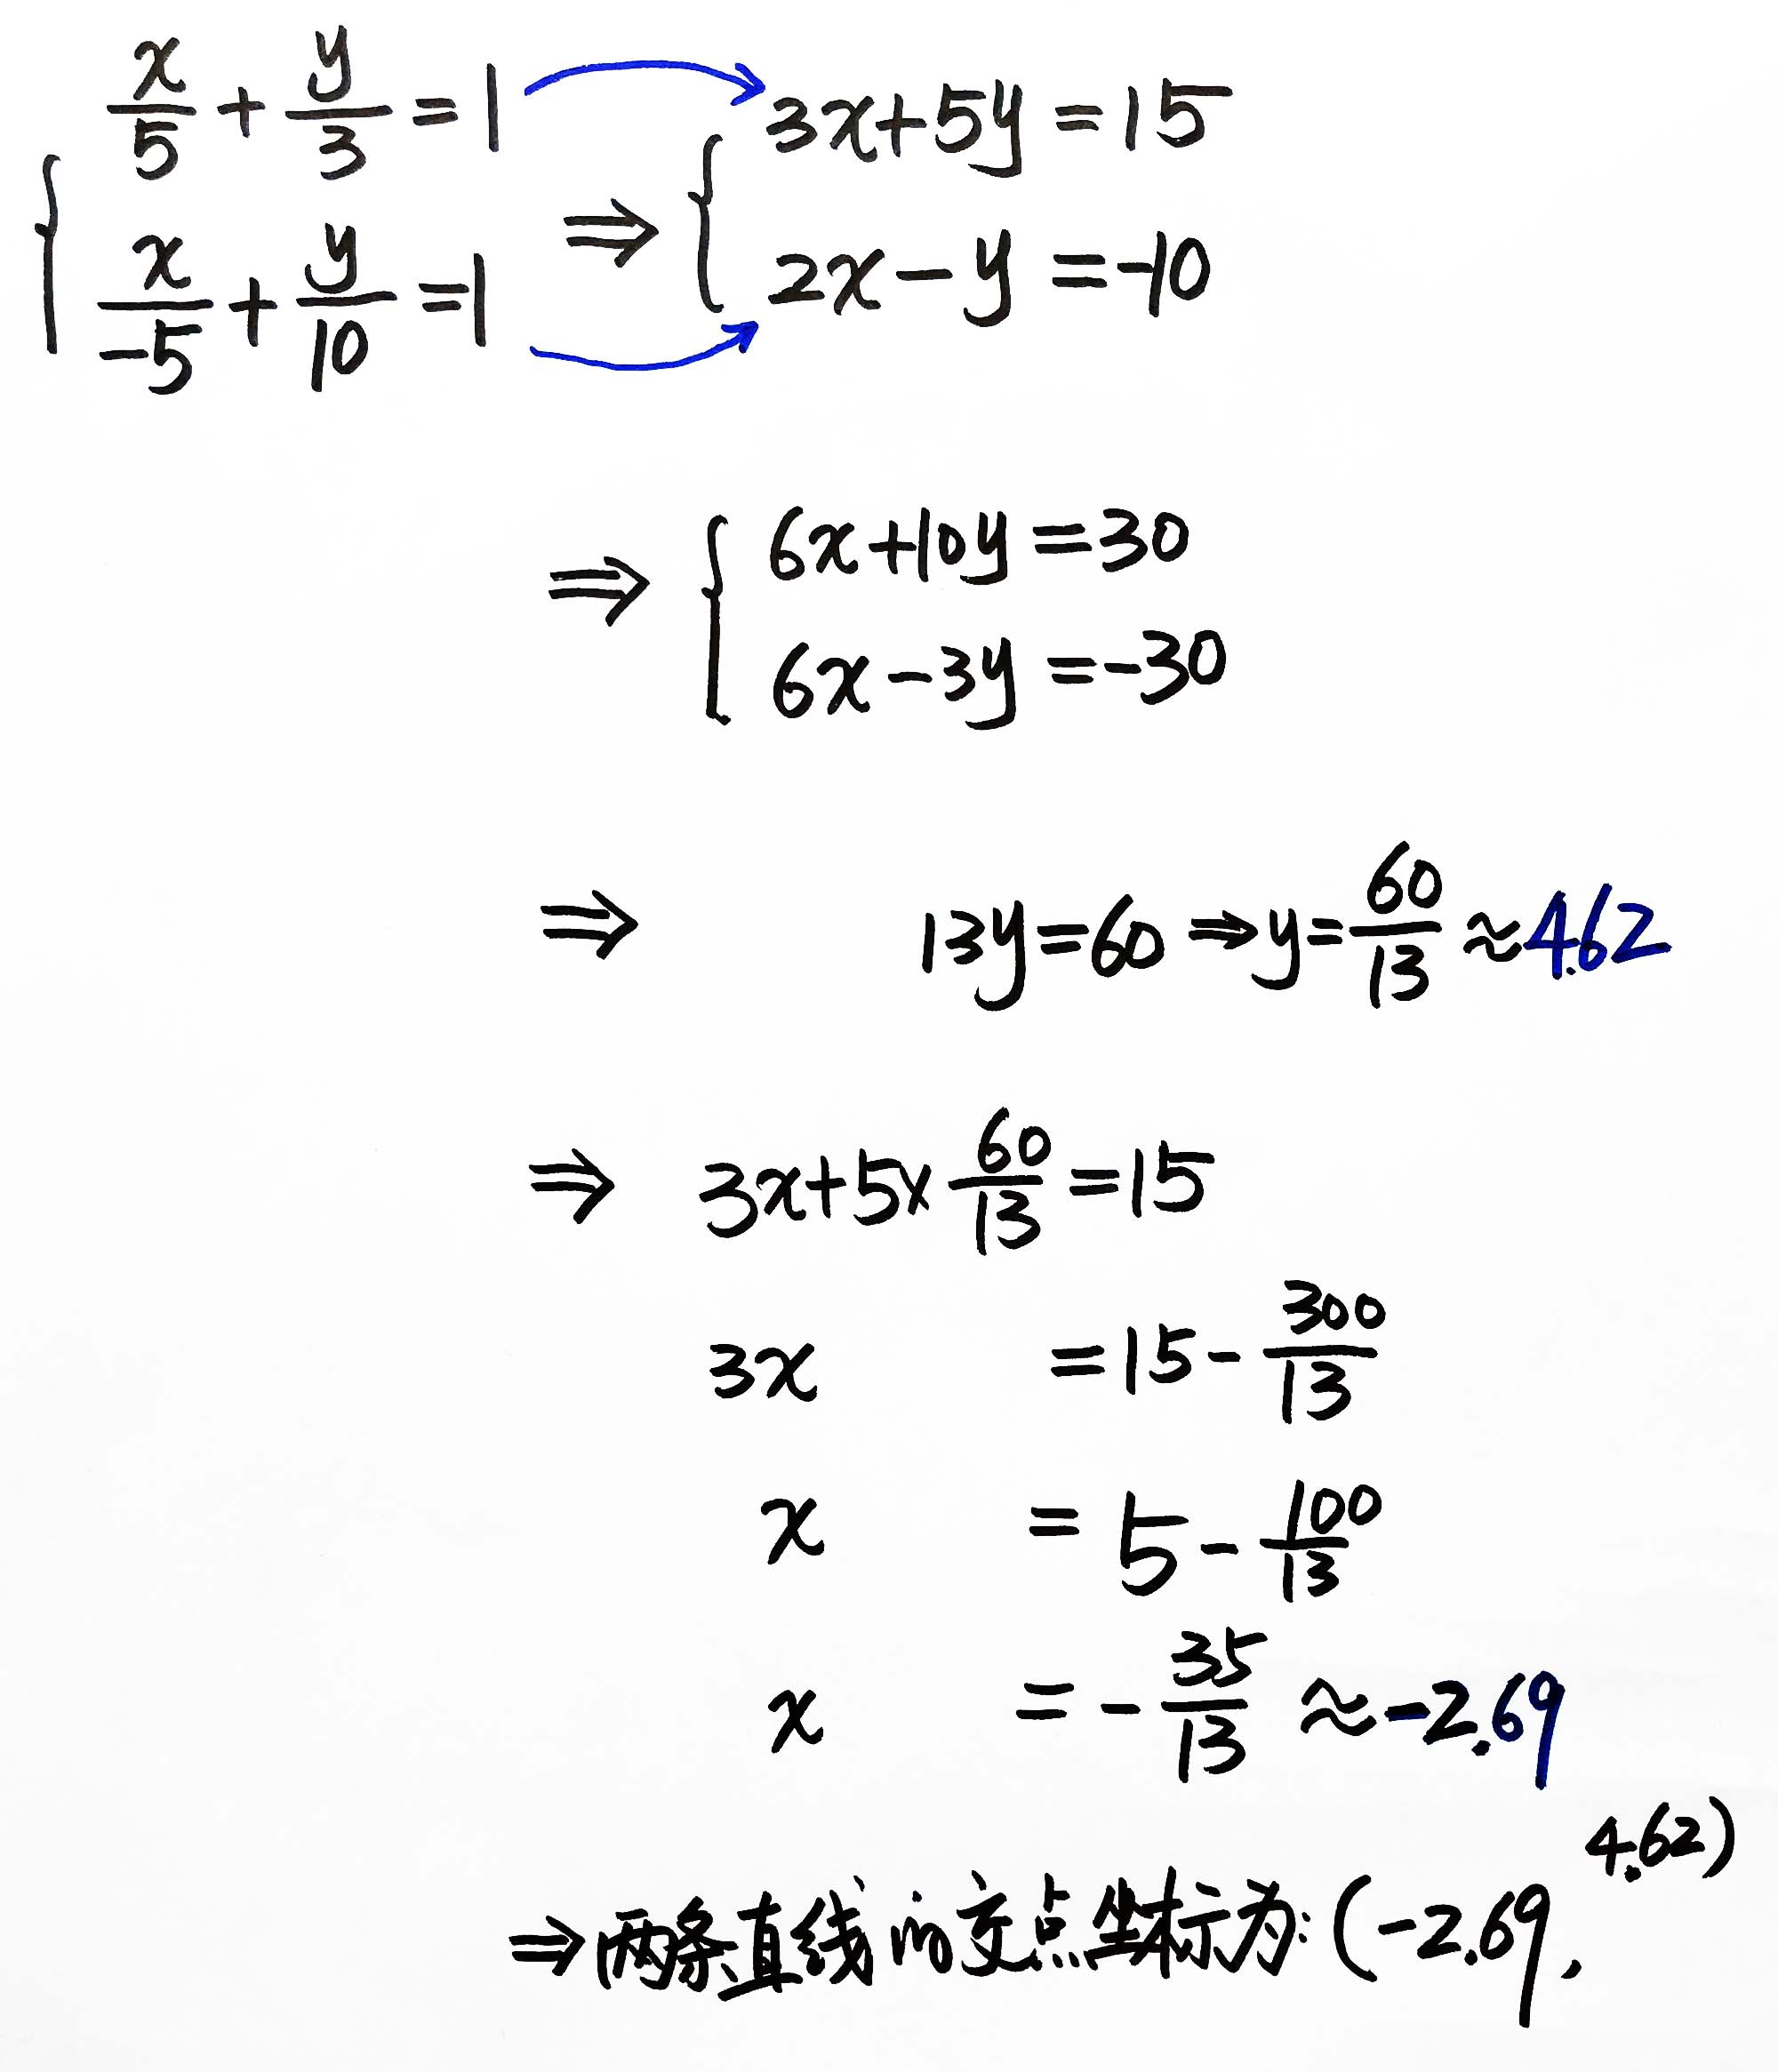 x/5 + y/3 = 1 → 3x+5y=15
{ ⇒ {
x/-5 + y/10 = 1 → 2x-y=-10
⇒ { 6x+10y=30
6x-3y=-30
⇒ 13y=60 ⇒ y=60/13 ≈4.62
⇒ 3x+5×60/13=15
3x =15-300/13
x = 5-100/13
x = -35/13 ≈-2.69
⇒两条直线的交点坐标为:(-2.69, 4.62)